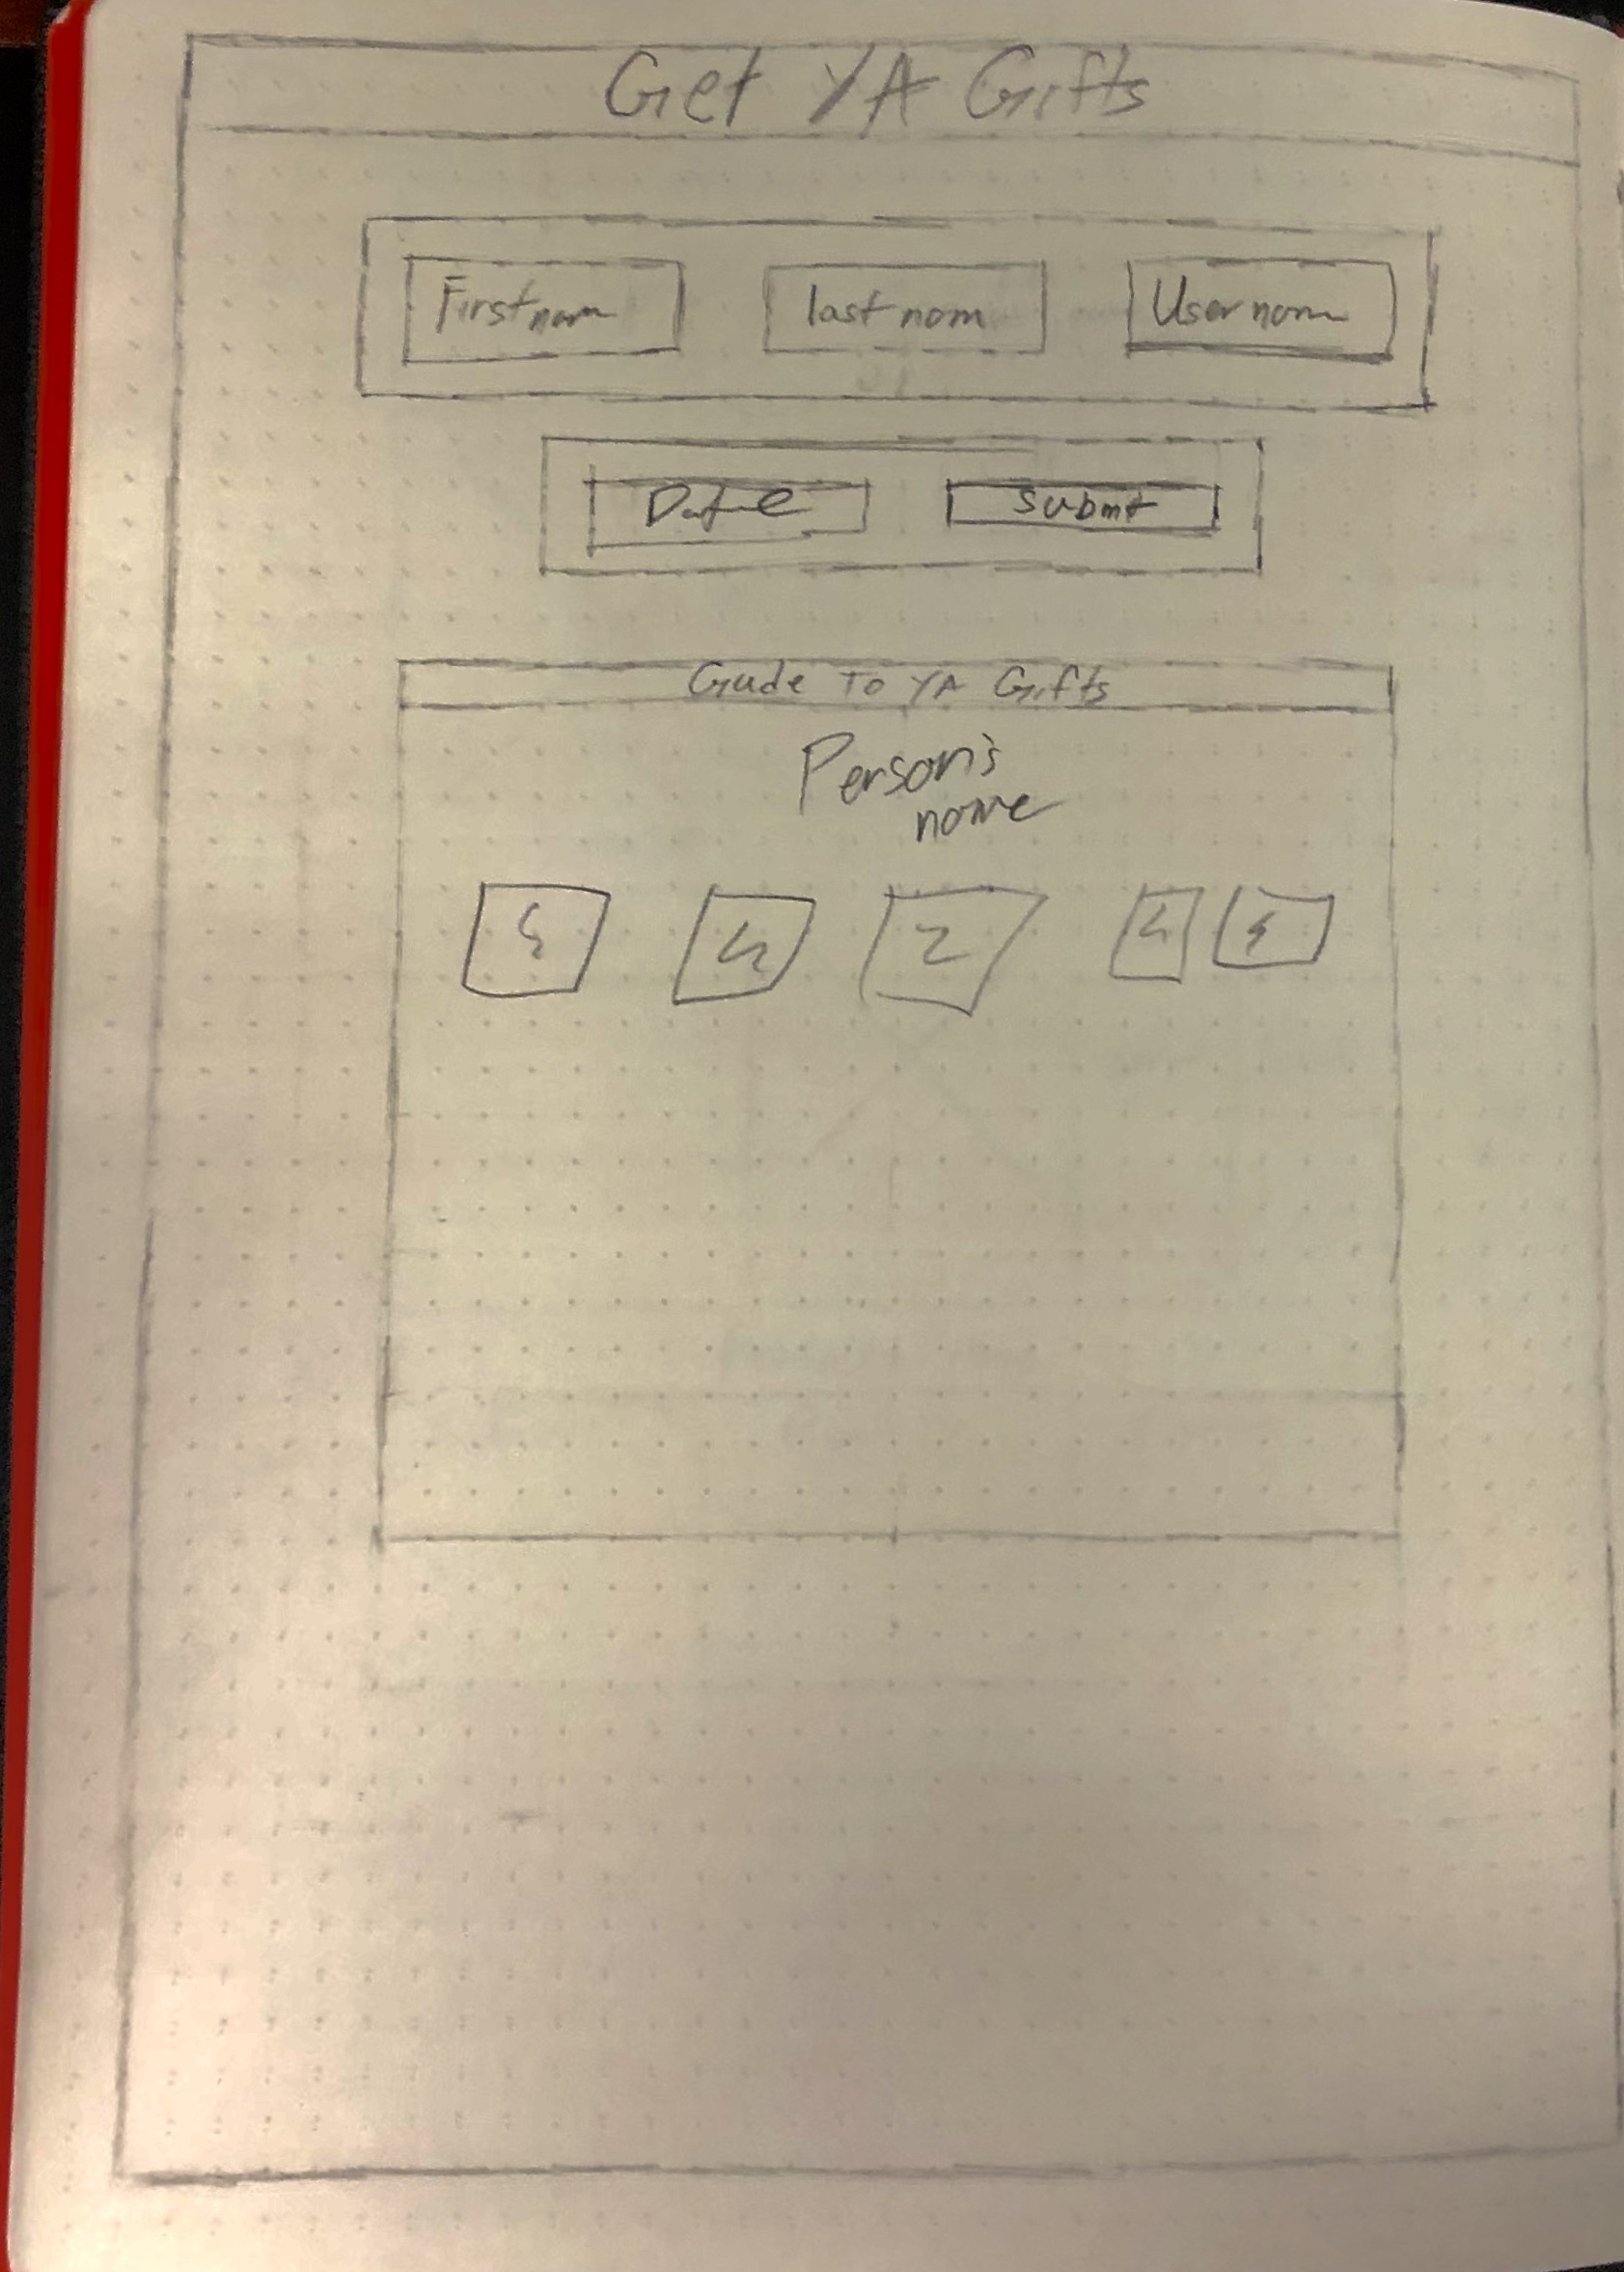 Get YA Gifts
First nam
last nom
User nom
Date
submt
Gude To YA Gifts
Person's
name